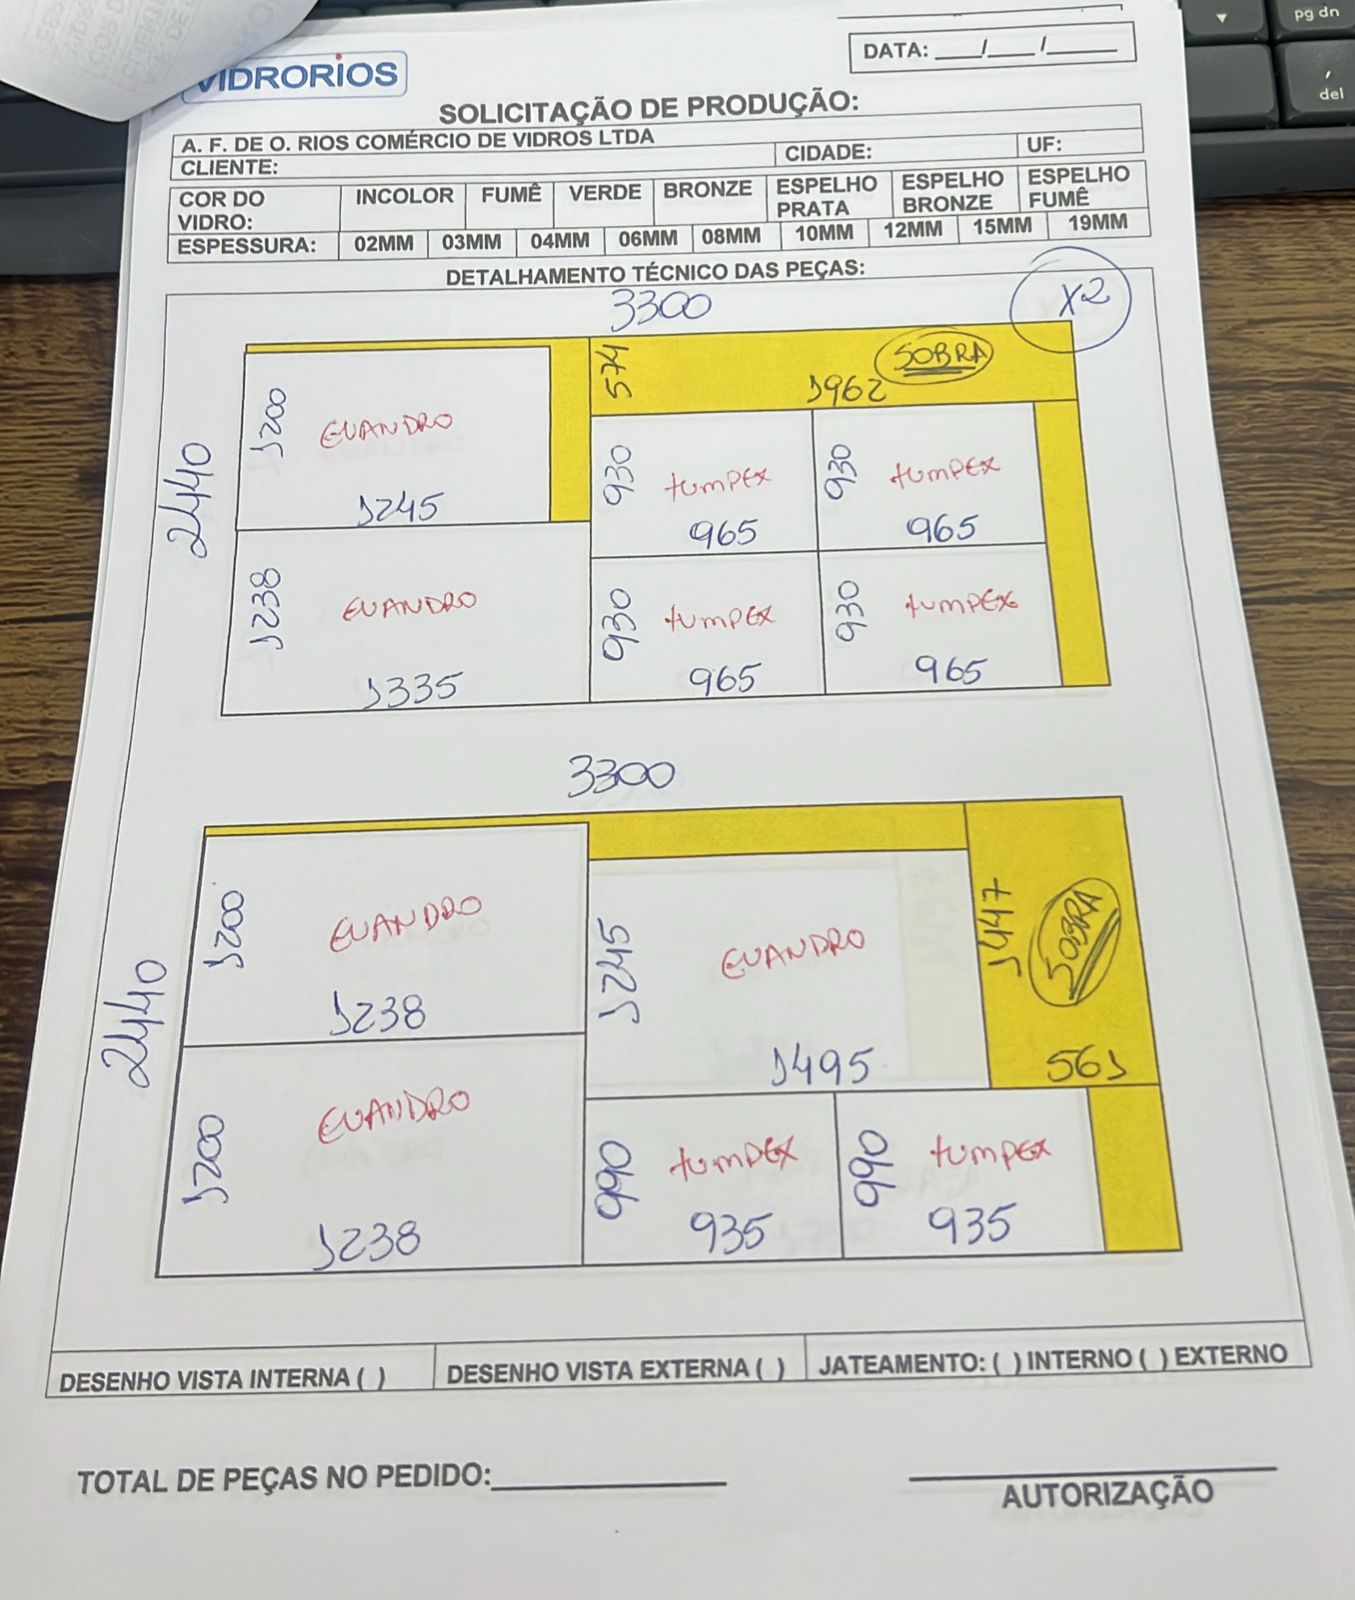 pg dn
del
VIDRORIOS
DATA: ___/___/_____
SOLICITAÇÃO DE PRODUÇÃO:
A. F. DE O. RIOS COMÉRCIO DE VIDROS LTDA
CLIENTE: CIDADE: UF:
COR DO VIDRO: INCOLOR FUMÊ VERDE BRONZE ESPELHO PRATA ESPELHO BRONZE ESPELHO FUMÊ
ESPESSURA: 02MM 03MM 04MM 06MM 08MM 10MM 12MM 15MM 19MM
DETALHAMENTO TÉCNICO DAS PEÇAS:
3300 X2
2440
1200 EVANDRO
1245
574 SOBRA
1962
930 tumpex 930 tumpex
965 965
1238 EVANDRO
1335
930 tumpex 930 tumpex
965 965
3300
2440
1200 EVANDRO
1238
1245 EVANDRO
1495
1447 SOBRA
561
1200 EVANDRO
1238
990 tumpex 990 tumpex
935 935
DESENHO VISTA INTERNA ( ) DESENHO VISTA EXTERNA ( ) JATEAMENTO: ( ) INTERNO ( ) EXTERNO
TOTAL DE PEÇAS NO PEDIDO:
AUTORIZAÇÃO